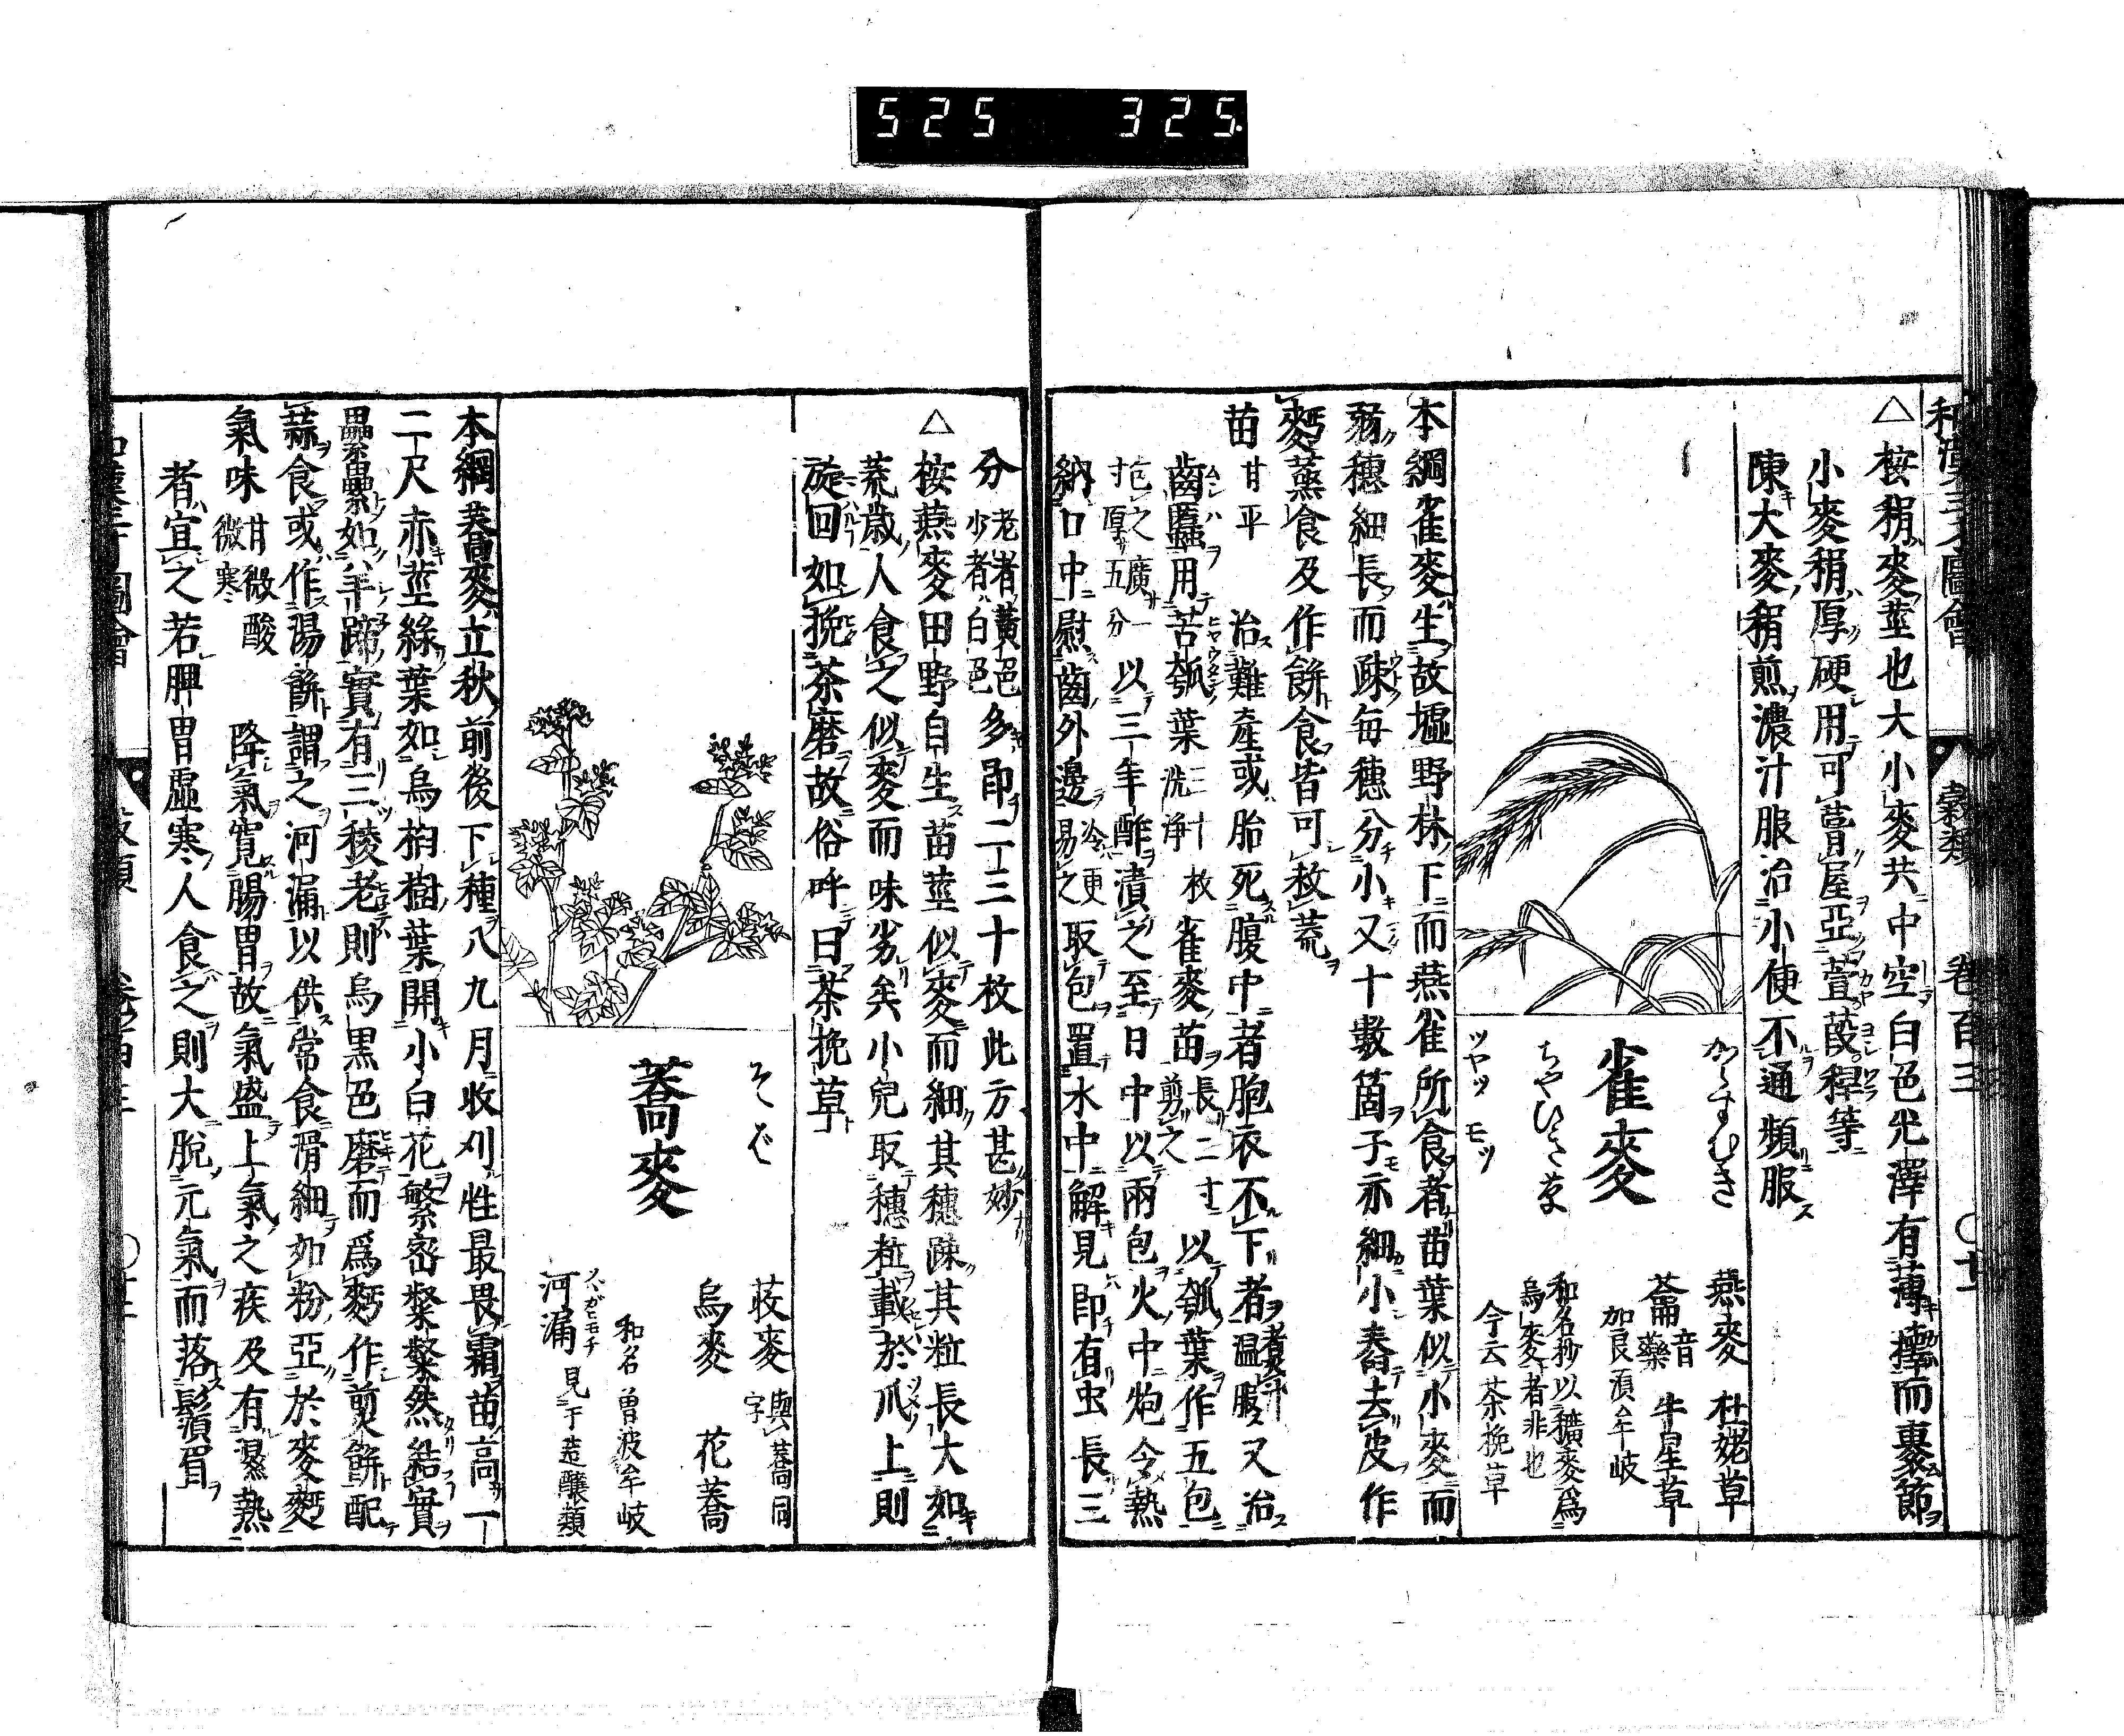 525 325
和漢三才圖會 穀類 巻百三 〇十一
△ 按稍麥莖也大小麥共中空白色光澤有薄擇而裹節
小麥稍厚硬用可葺屋亞萱葭稕等
陳大麥稍煎濃汁服治小便不通頻服
からすむぎ
ちやひき草
雀麥
ツヤツ モツ
燕麥 杜姥草
蘥音藥 牛星草
加良須牟岐
和名抄以穬麥爲
烏麥者非也
今云茶挽草
本綱雀麥生故墟野林下而燕雀所食者苗葉似小麥而
弱穗細長而疎每穗分小叉十數箇子亦細小舂去皮作
麪蒸食及作餅食皆可救荒
苗 甘平 治難產或胎死腹中者胞衣不下者煮汁温服又治
齒䘌用苦瓠葉三十枚洗淨雀麥苗長二寸剪之以瓠葉作五包
包之廣一寸厚五分以三年酢漬之至日中以兩包火中炮令熱
納口中熨齒外邊冷更易之取包置水中解見即有虫長三
分老者黄色少者白色多即二三十枚此方甚妙
△ 按燕麥田野自生苗莖似麥而細其穗疎其粒長大如
荒歳人食之似麥而味劣矣小兒取穗粒載於爪上則
旋回如挽茶磨故俗呼曰茶挽草
そば
蕎麥
荍麥與蕎同字
烏麥 花蕎
和名曾波牟岐
河漏見于造釀類
ソバガヒモチ
本綱蕎麥立秋前後下種八九月收刈性最畏霜苗高一
二尺赤莖綠葉如烏桕樹葉開小白花繁密粲粲然結實
纍纍如羊蹄實有三稜老則烏黒色磨而爲麪作煎餅配
蒜食或作湯餅謂之河漏以供常食滑細如粉亞於麥麪
氣味甘微酸微寒 降氣寛腸胃故氣盛上氣之疾及有濕熱
者宜之若脾胃虛寒人食之則大脫元氣而落鬚眉